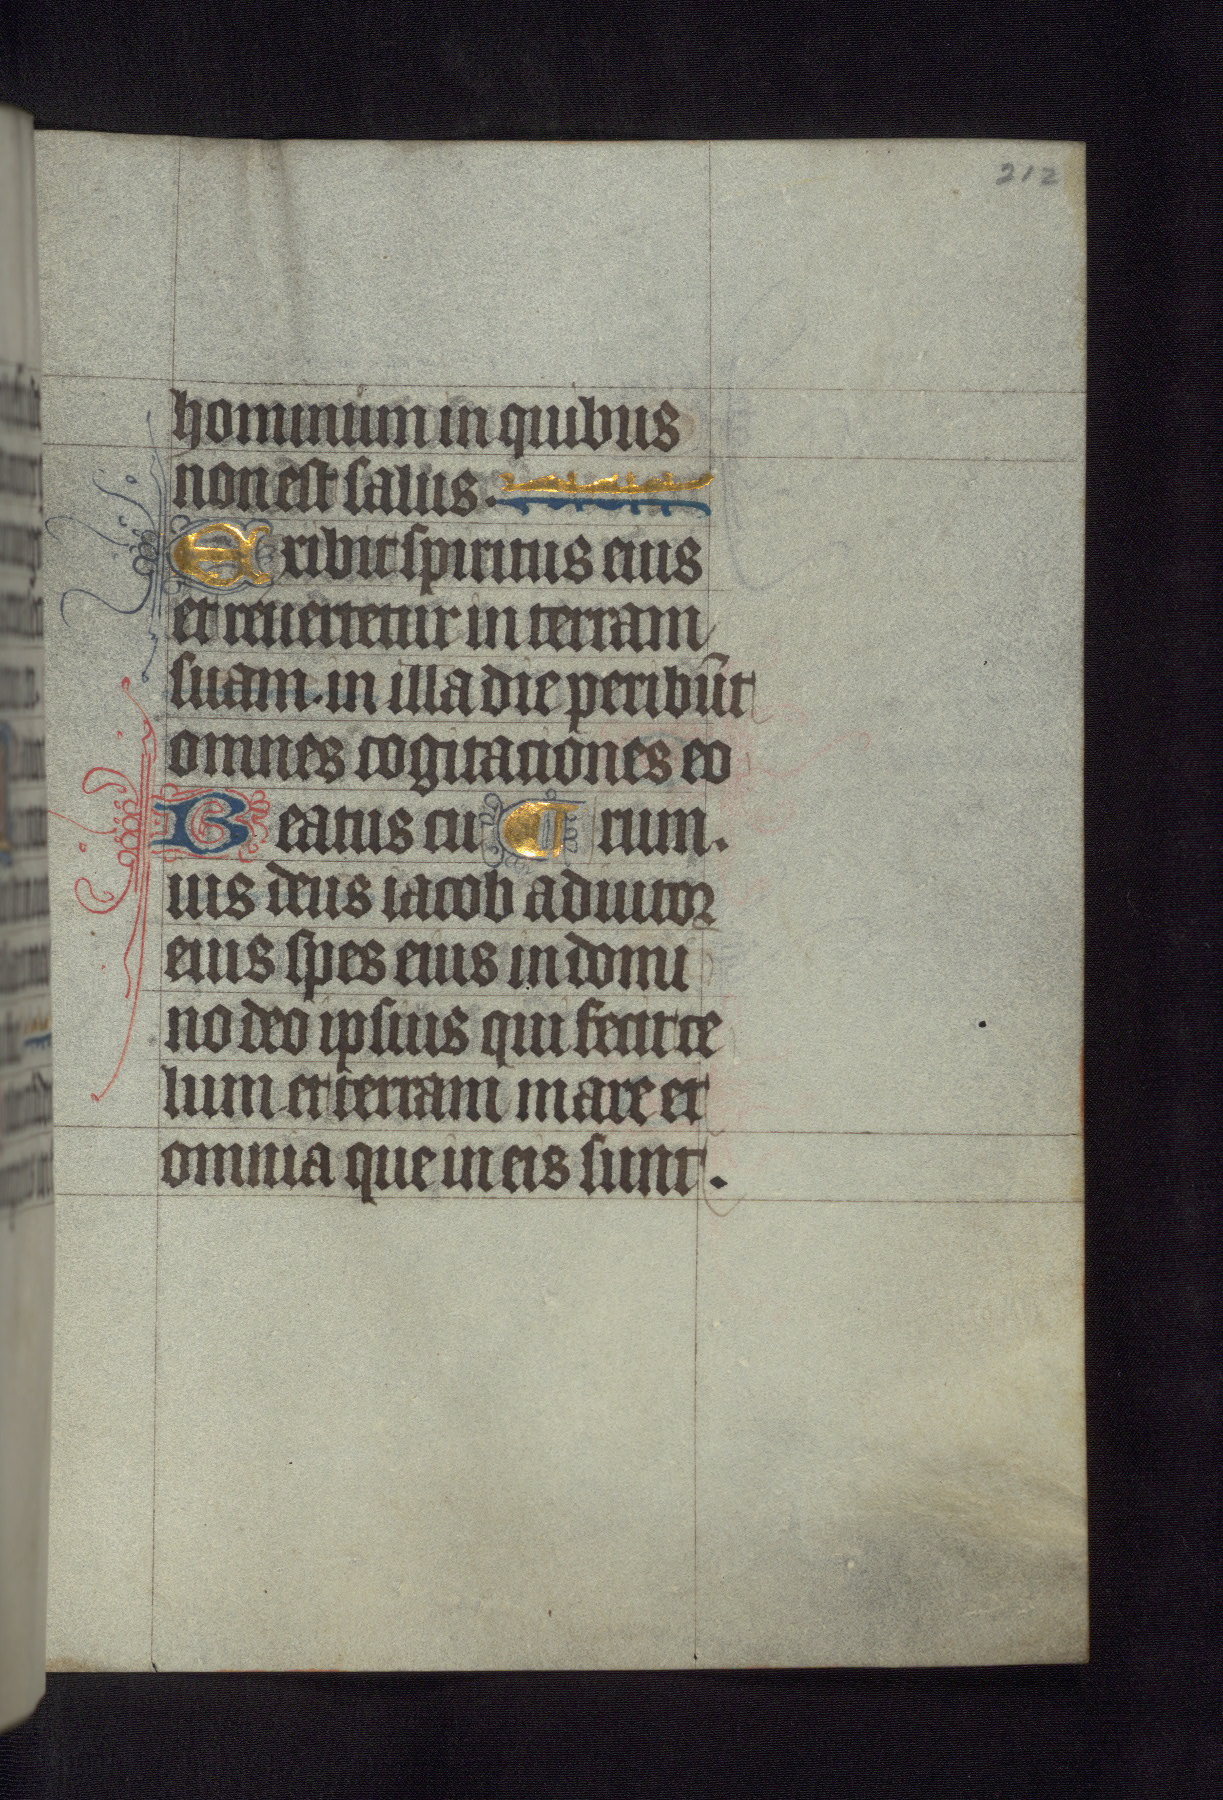 212
hominum in quibus
non est salus.
Exibit spiritus eius
et reuertetur in terram
suam. in illa die peribūt
omnes cogitationes eo
Beatus cu ¶ rum.
ius deus iacob adiutor
eius spes eius in domi
no deo ipsius qui fecit ce
lum et terram mare et
omnia que in eis sunt.